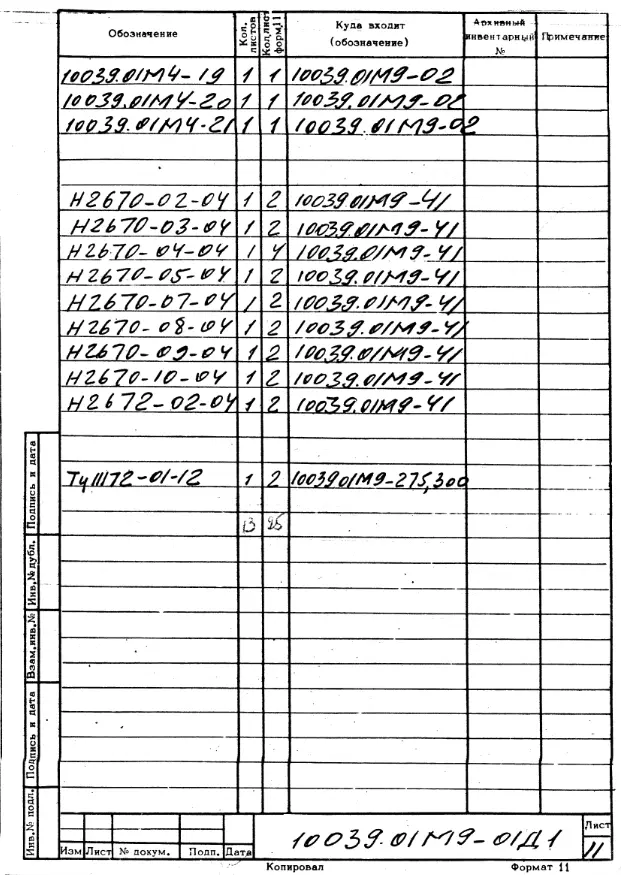 Обозначение Кол. листов Кол.лист форм.11 Куда входит (обозначение) Архивный инвентарный № Примечание
10039.01М4-19 1 1 10039.01М9-02
10039.01М4-20 1 1 10039.01М9-02
10039.01М4-21 1 1 10039.01М9-02
Н2670-02-04 1 2 10039.01М9-41
Н2670-03-04 1 2 10039.01М9-41
Н2670-04-04 1 4 10039.01М9-41
Н2670-05-04 1 2 10039.01М9-41
Н2670-07-04 1 2 10039.01М9-41
Н2670-08-04 1 2 10039.01М9-41
Н2670-09-04 1 2 10039.01М9-41
Н2670-10-04 1 2 10039.01М9-41
Н2672-02-04 1 2 10039.01М9-41
1 2 1003901М9-275,300
13 25
Подпись и дата
Инв.№ дубл.
Взам.инв.№
Подпись и дата
Инв.№ подл.
Изм Лист № докум. Подп. Дата
10039.01М9-01Д1
Лист
11
Копировал Формат 11